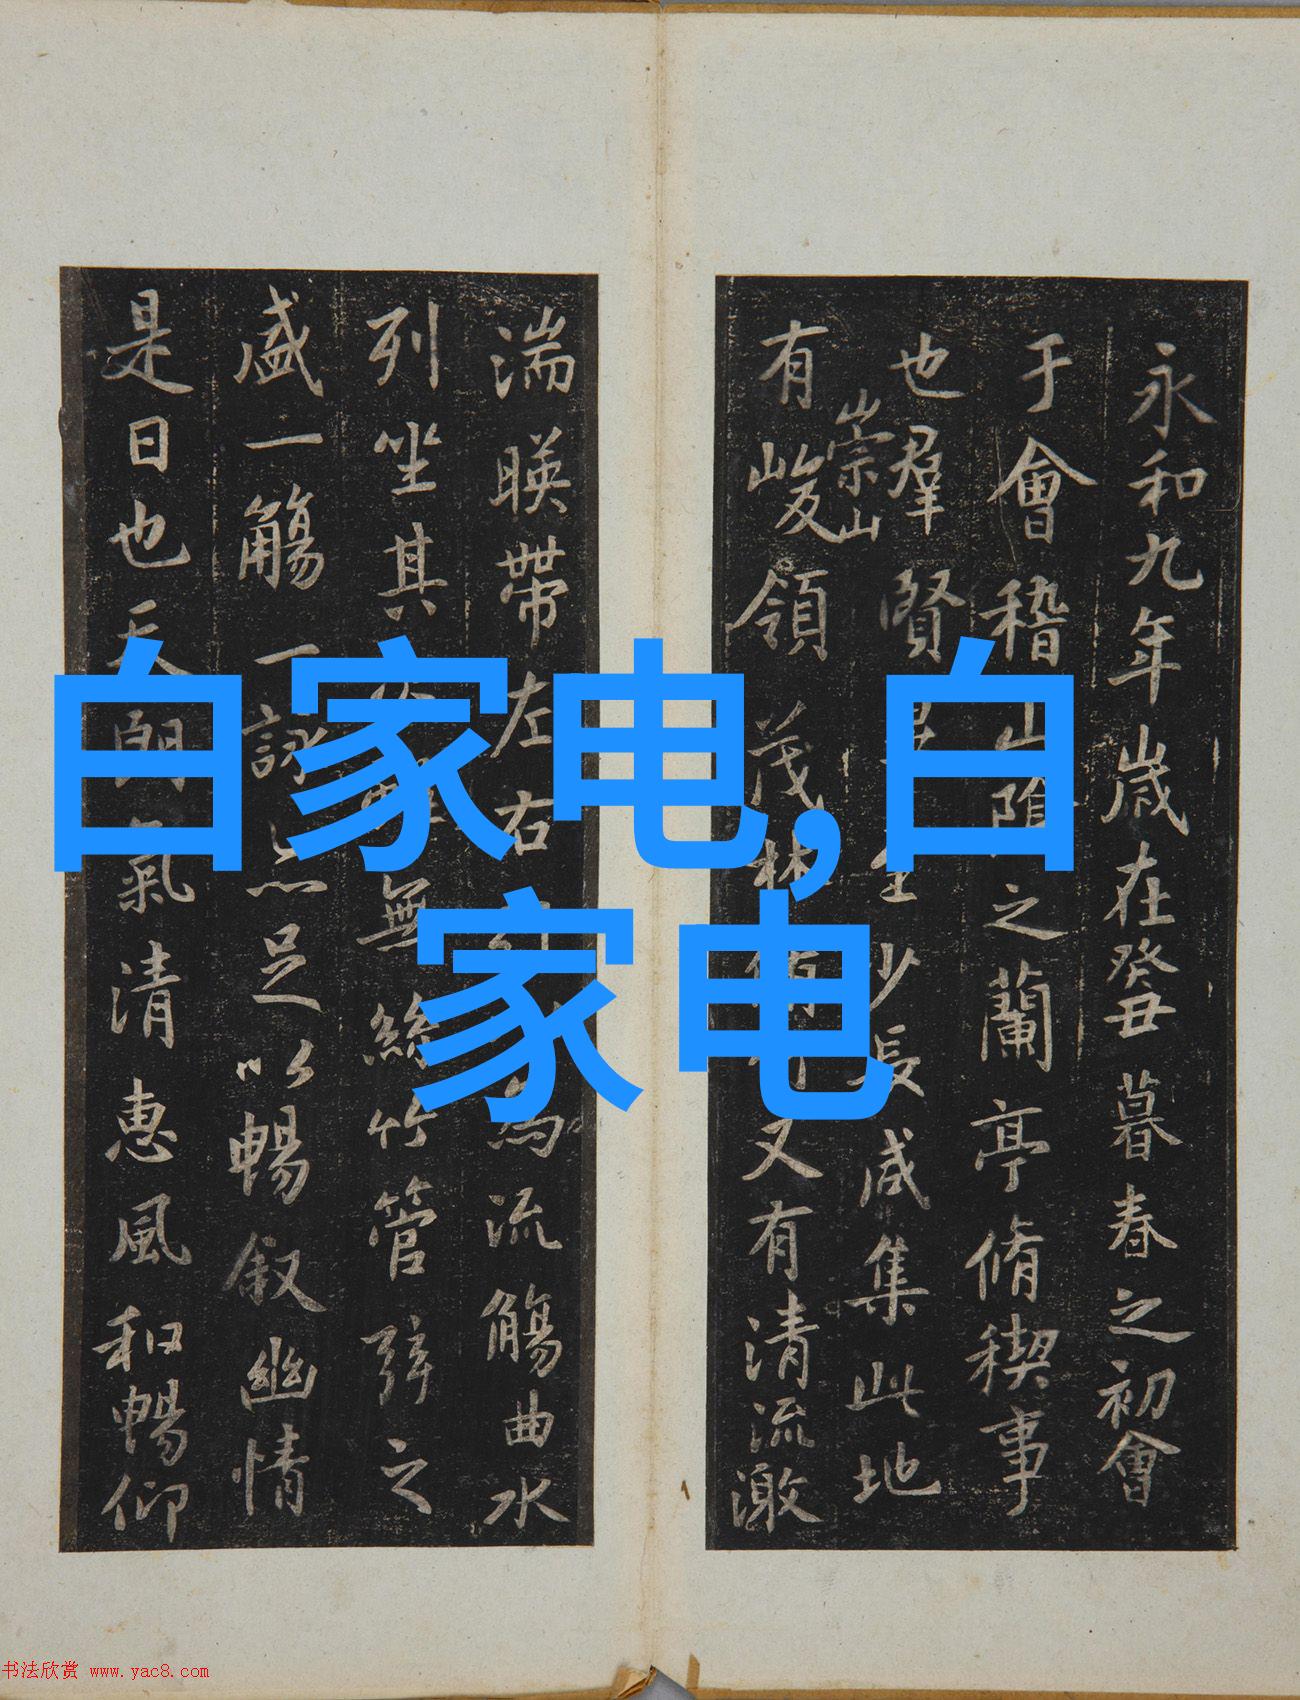 白家电,白
家电
永和九年歲在癸丑暮春之初會
于會稽山陰之蘭亭脩禊事
也羣賢至少長咸集此地
崇山
有峻領茂林又有清流激
湍暎帶左右為流觴曲水
列坐其無絲竹管弦之
盛一觴一詠亦足以暢叙幽情
是日也天朗氣清惠風和暢仰
书法欣赏 www.yac8.com